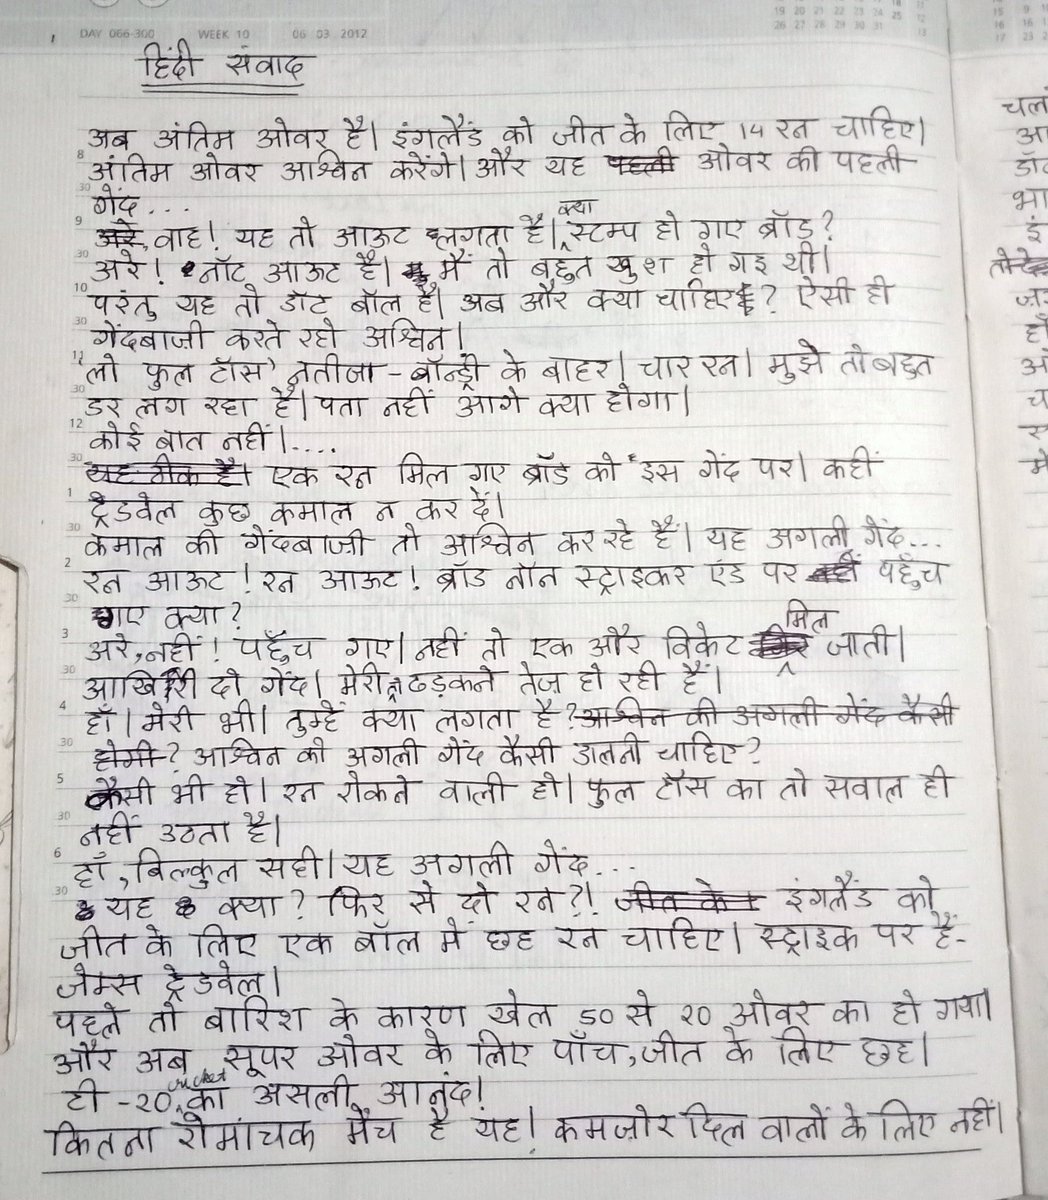 DAY 066-300 WEEK 10 06 03 2012
हिंदी संवाद
अब अंतिम ओवर है। इंगलैंड को जीत के लिए 14 रन चाहिए।
अंतिम ओवर आश्विन करेंगे। और यह पहली ओवर की पहली
गेंद...
अरे, वाह! यह तो आऊट लगता है। क्या स्टम्प हो गए ब्रॉड?
अरे! नॉट आऊट है। मैं तो बहुत खुश हो गइ थी।
परंतु यह तो डॉट बॉल है। अब और क्या चाहिए? ऐसी ही
गेंदबाज़ी करते रहो अश्विन।
'लो फुल टॉस' नतीजा - बॉन्ड्री के बाहर। चार रन। मुझे तो बहुत
डर लग रहा है। पता नहीं आगे क्या होगा।
कोई बात नहीं।....
यह ठीक है। एक रन मिल गए ब्रॉड को इस गेंद पर। कहीं
ट्रेडवेल कुछ कमाल न कर दें।
कमाल की गेंदबाज़ी तो आश्विन कर रहे हैं। यह अगली गेंद...
रन आऊट! रन आऊट! ब्रॉड नॉन स्ट्राइकर एंड पर नहीं पहुँच
गए क्या?
अरे, नहीं! पहुँच गए। नहीं तो एक और विकेट मिल जाती।
आखिरी दो गेंद। मेरी ढड़कने तेज़ हो रही हैं।
हाँ। मेरी भी। तुम्हें क्या लगता है? आश्विन की अगली गेंद कैसी
होगी? आश्विन को अगली गेंद कैसी डालनी चाहिए?
कैसी भी हो। रन रोकने वाली हो। फुल टॉस का तो सवाल ही
नहीं उठता है।
हाँ, बिल्कुल सही। यह अगली गेंद...
यह क्या? फिर से दो रन?! जीत के इंगलैंड को
जीत के लिए एक बॉल में छह रन चाहिए। स्ट्राइक पर हैं-
जेम्स ट्रेडवेल।
पहले तो बारिश के कारण खेल 50 से 20 ओवर का हो गया।
और अब सूपर ओवर के लिए पाँच, जीत के लिए छह।
टी-20 cricket का असली आनंद!
कितना रोमांचक मैच है यह। कमज़ोर दिल वालों के लिए नहीं।